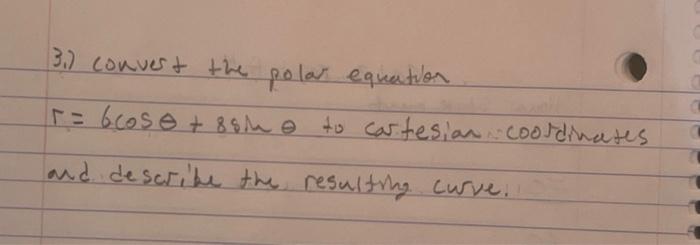 3.) convert the polar equation
r = 6cosθ + 8sin θ to cartesian coordinates
and describe the resulting curve.